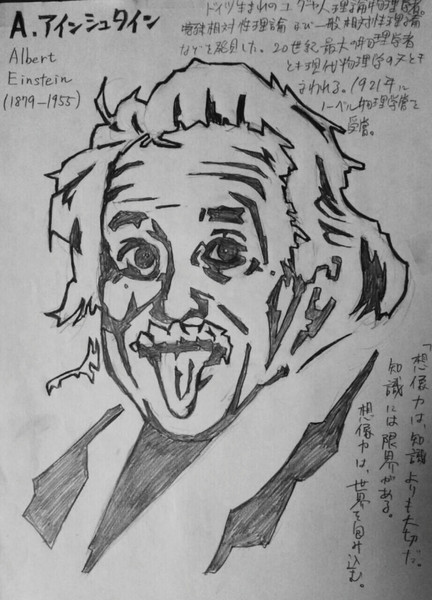 A. アインシュタイン
Albert
Einstein
(1879–1955)
ドイツ生まれのユダヤ人理論物理学者。
特殊相対性理論および一般相対性理論
などを発見した。20世紀最大の物理学者
とも現代物理学の父とも
言われる。1921年に
ノーベル物理学賞を
受賞。
「想像力は、知識よりも大切だ。
知識には限界がある。
想像力は、世界を包み込む。